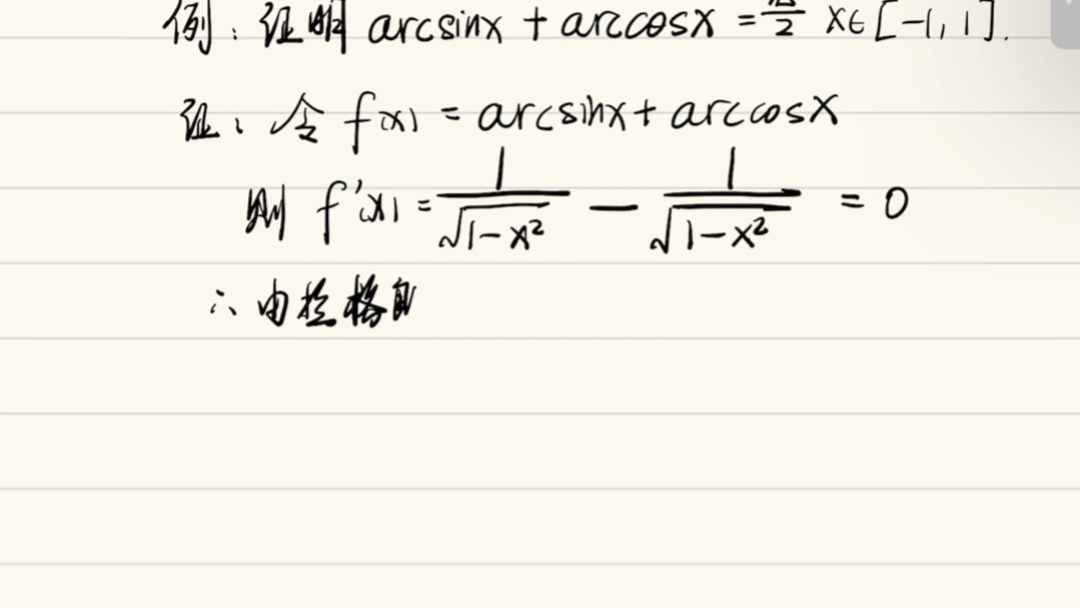 例：证明 arcsinx + arccosx = π/2 x∈[-1, 1].
证：令 f(x) = arcsinx + arccosx
则 f'(x) = 1/√(1-x²) - 1/√(1-x²) = 0
∴ 由拉格